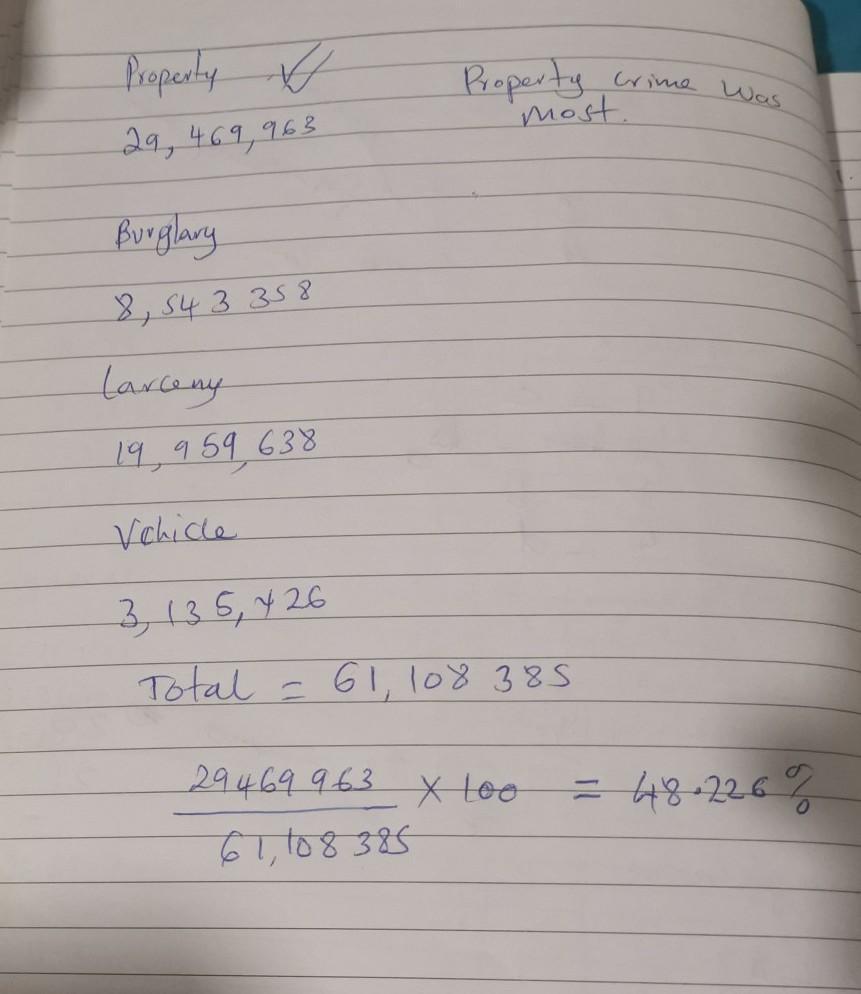 Property ✓
Property crime was
most.
29,469,963
Burglary
8,543 358
Larceny
19,959,638
Vehicle
3,135,426
Total = 61,108 385
29469 963 × 100 = 48.226%
61,108 385